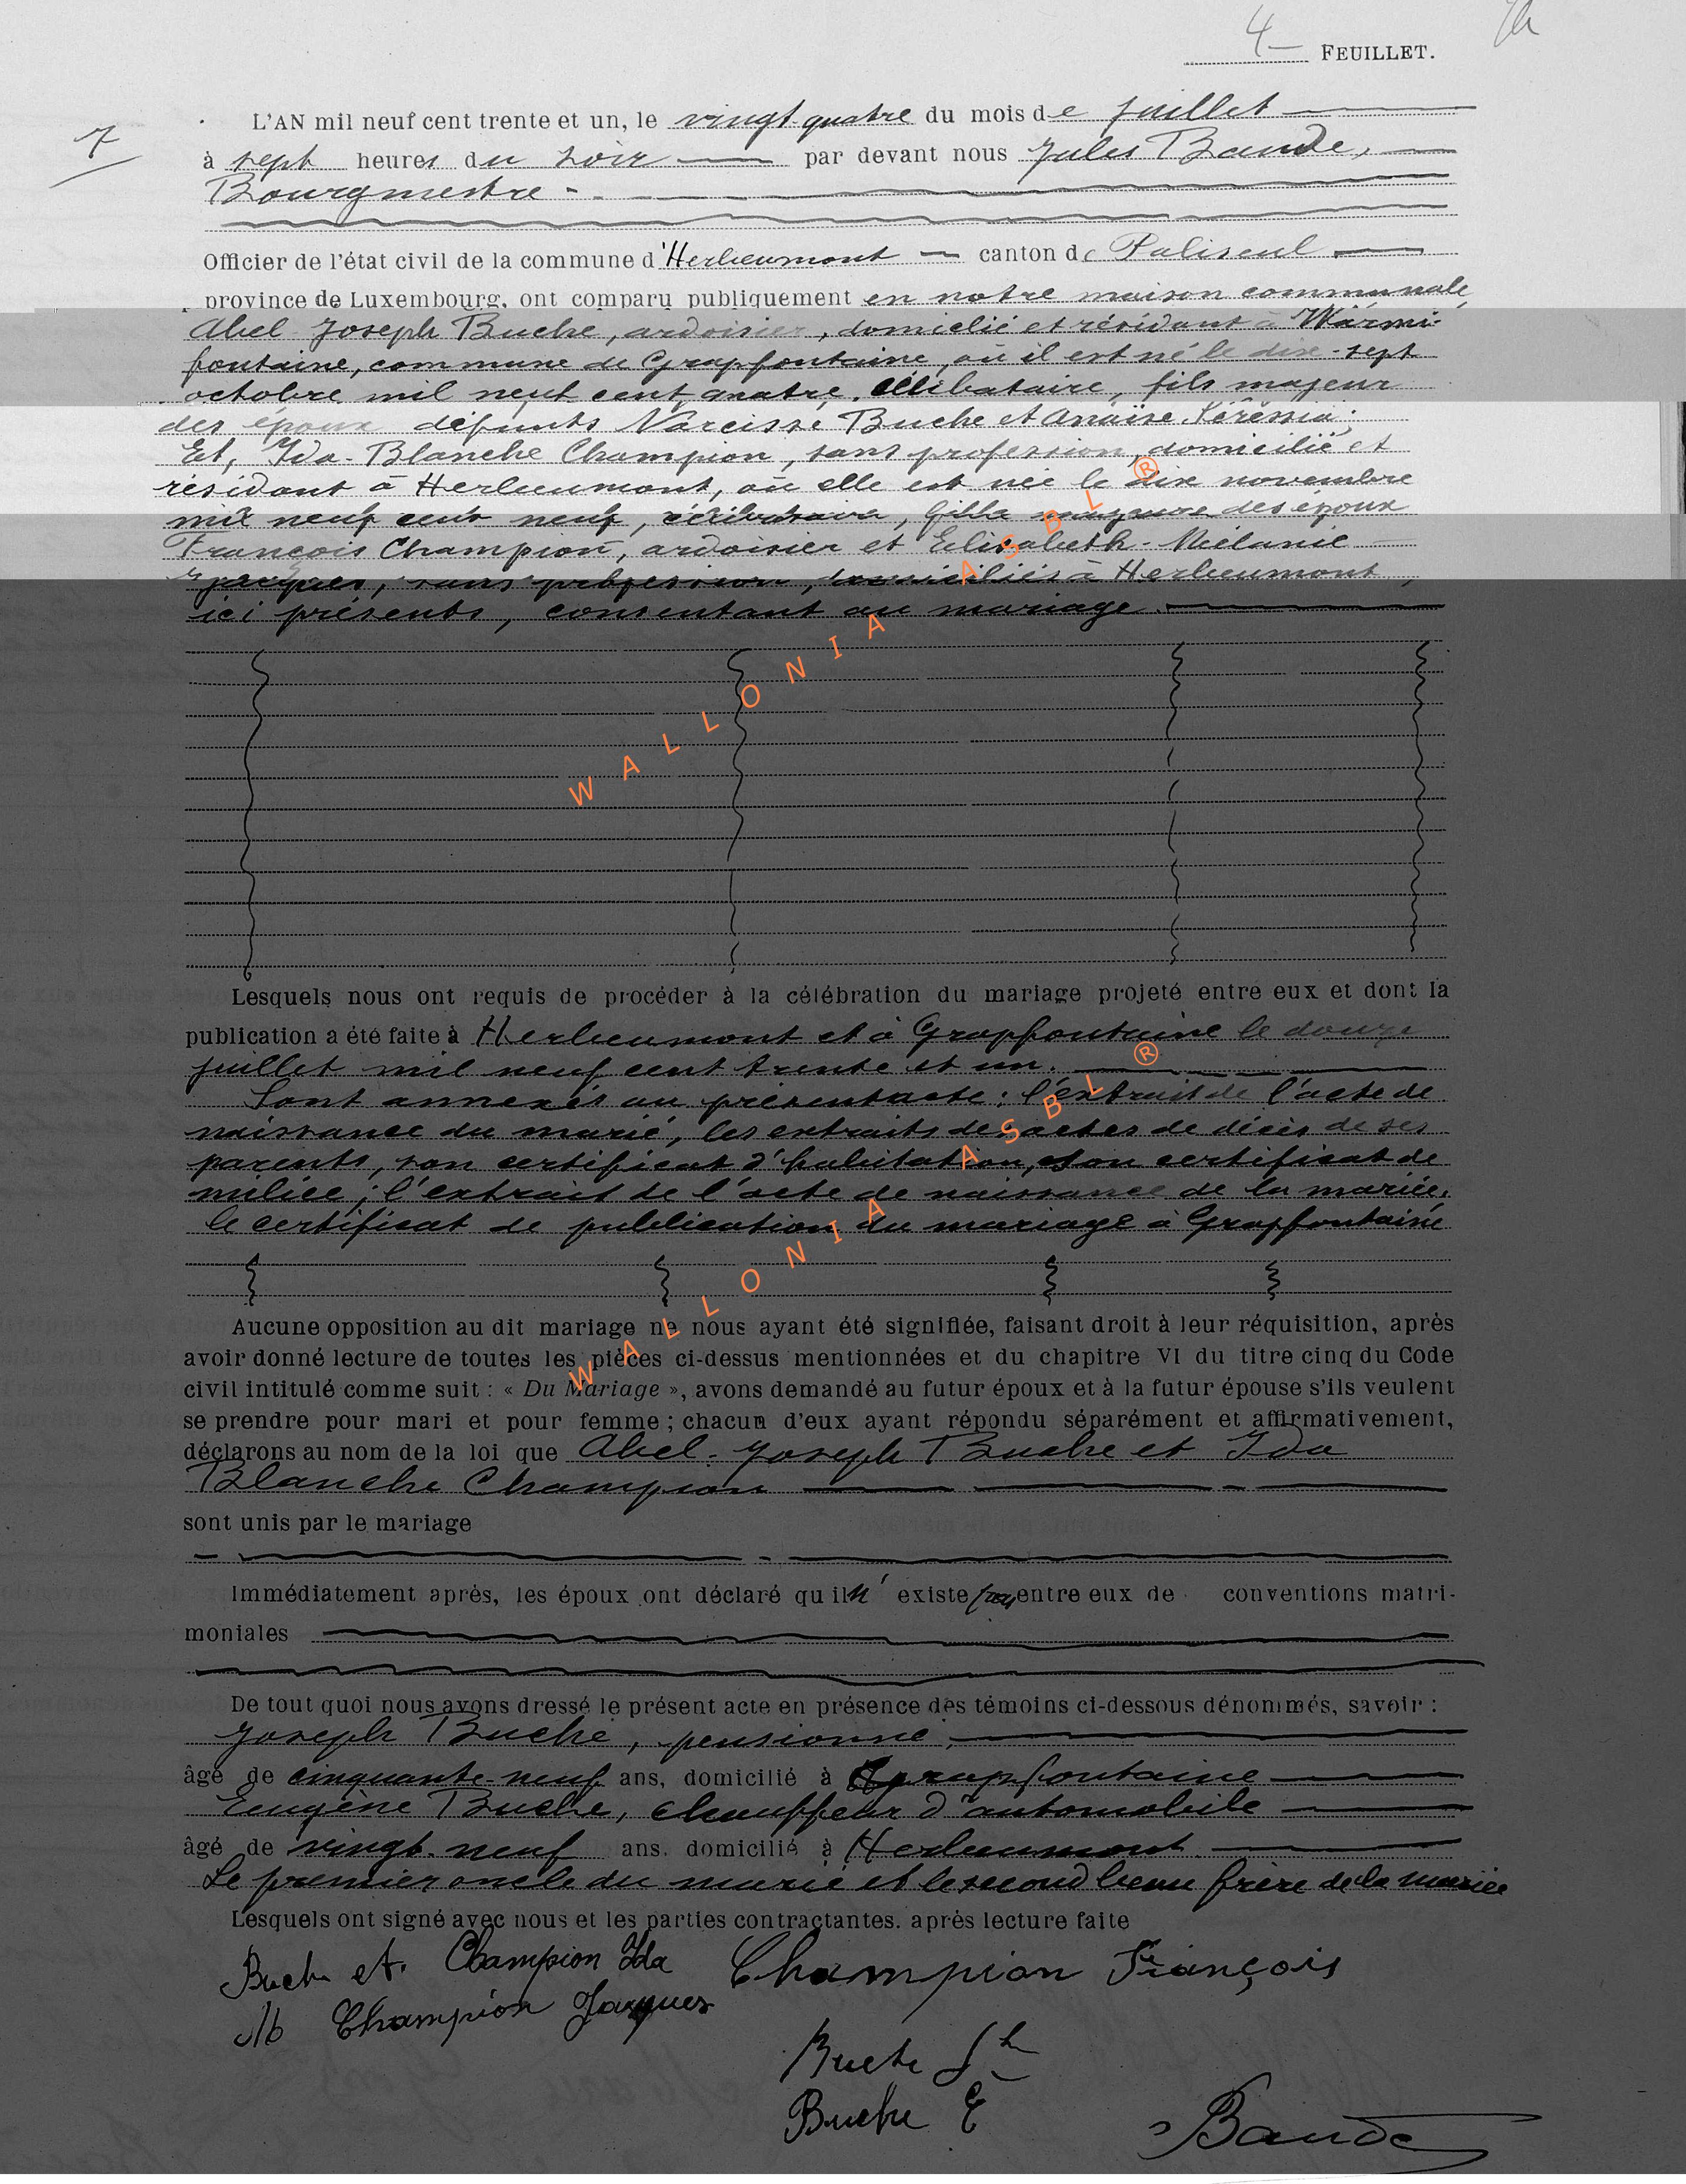 4 FEUILLET.
7
L'AN mil neuf cent trente et un, le vingt-quatre du mois de juillet
à sept heures du soir par devant nous Jules Baude,
Bourgmestre
Officier de l'état civil de la commune d'Herbeumont canton de Paliseul
province de Luxembourg, ont comparu publiquement en notre maison communale,
Abel-Joseph Buche, ardoisier, domicilié et résidant à Warmi-
fontaine, commune de Grapfontaine, où il est né le dix-sept
octobre mil neuf cent quatre, célibataire, fils majeur
des époux défunts Narcisse Buche et Anaïse
Et, Ida-Blanche Champion, sans profession, domicilié et
résidant à Herbeumont, où elle est née le dix novembre
mil neuf cent neuf, célibataire, fille majeure des époux
François Champion, ardoisier et Elisabeth-Mélanie
Jacques, sans profession, domiciliés à Herbeumont,
ici présents, consentant au mariage.
Lesquels nous ont requis de procéder à la célébration du mariage projeté entre eux et dont la
publication a été faite à Herbeumont et à Grapfontaine le douze
juillet mil neuf cent trente et un.
Sont annexés au présent acte : l'extrait de l'acte de
naissance du marié, les extraits des actes de décès de ses
parents, son certificat d'habitation, son certificat de
milice ; l'extrait de l'acte de naissance de la mariée,
le certificat de publication du mariage à Grapfontaine
Aucune opposition au dit mariage ne nous ayant été signifiée, faisant droit à leur réquisition, après
avoir donné lecture de toutes les pièces ci-dessus mentionnées et du chapitre VI du titre cinq du Code
civil intitulé comme suit : « Du Mariage », avons demandé au futur époux et à la futur épouse s'ils veulent
se prendre pour mari et pour femme ; chacun d'eux ayant répondu séparément et affirmativement,
déclarons au nom de la loi que Abel-Joseph Buche et Ida
Blanche Champion
sont unis par le mariage
Immédiatement après, les époux ont déclaré qu'il n'existe pas entre eux de conventions matri-
moniales
De tout quoi nous avons dressé le présent acte en présence des témoins ci-dessous dénommés, savoir :
Joseph Buche, pensionné,
âgé de cinquante-neuf ans, domicilié à Grapfontaine
Eugène Buche, chauffeur d'automobile
âgé de vingt-neuf ans. domicilié à Herbeumont
Le premier oncle du marié et le second beau frère de la mariée
Lesquels ont signé avec nous et les parties contractantes. après lecture faite
Buche A. Champion Ida Champion François
M Champion Jacques
Buche Jh
Buche E
Baude
WALLONIA ASBL ®
WALLONIA ASBL ®